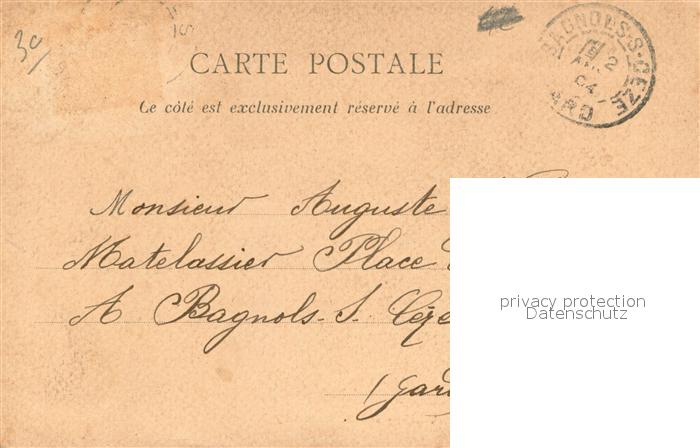 30
CARTE POSTALE
Ce côté est exclusivement réservé à l'adresse
BAGNOLS-S-CEZE
2
04
GARD
Monsieur Auguste
Matelassier Place
A Bagnols-S. Cèze
(Gard
privacy protection
Datenschutz